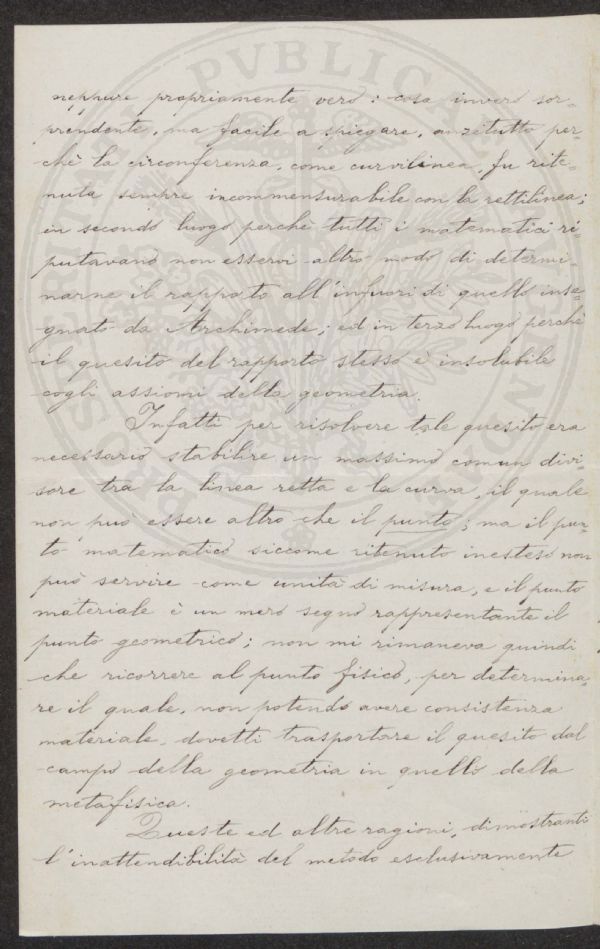 neppure propriamente vero: cosa invero sor=
prendente, ma facile a spiegare, anzitutto per=
chè la circonferenza, come curvilinea, fu rite=
nuta sempre incommensurabile con la rettilinea;
in secondo luogo perchè tutti i matematici ri=
putavano non esservi altro modo di determi=
narne il rapporto all'infuori di quello inse=
gnato da Archimede; ed in terzo luogo perchè
il quesito del rapporto stesso è insolubile
cogli assiomi della geometria.
Infatti per risolvere tale quesito era
necessario stabilire un massimo comun divi=
sore tra la linea retta e la curva, il quale
non può essere altro che il punto; ma il pun=
to matematico siccome ritenuto inesteso non
può servire come unità di misura, e il punto
materiale è un mero segno rappresentante il
punto geometrico; non mi rimaneva quindi
che ricorrere al punto fisico, per determina=
re il quale, non potendo avere consistenza
materiale, dovetti trasportare il quesito dal
campo della geometria in quello della
metafisica.
Queste ed altre ragioni, dimostranti
l'inattendibilità del metodo esclusivamente